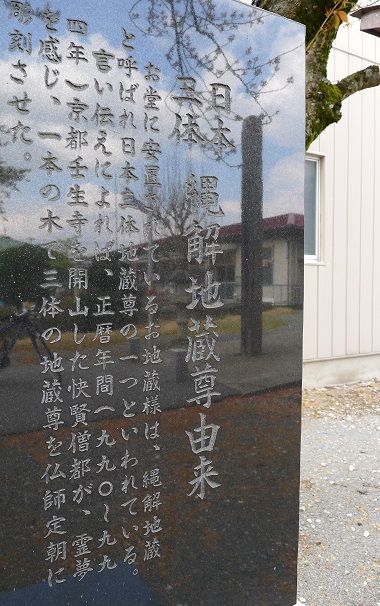 日本
三体 縄解地蔵尊由来
お堂に安置されているお地蔵様は、縄解地蔵
と呼ばれ日本三体地蔵尊の一つといわれている。
言い伝えによれば、正暦年間(九九〇〜九九
四年)京都壬生寺を開山した快賢僧都が、霊夢
を感じ、一本の木で三体の地蔵尊を仏師定朝に
彫刻させた。